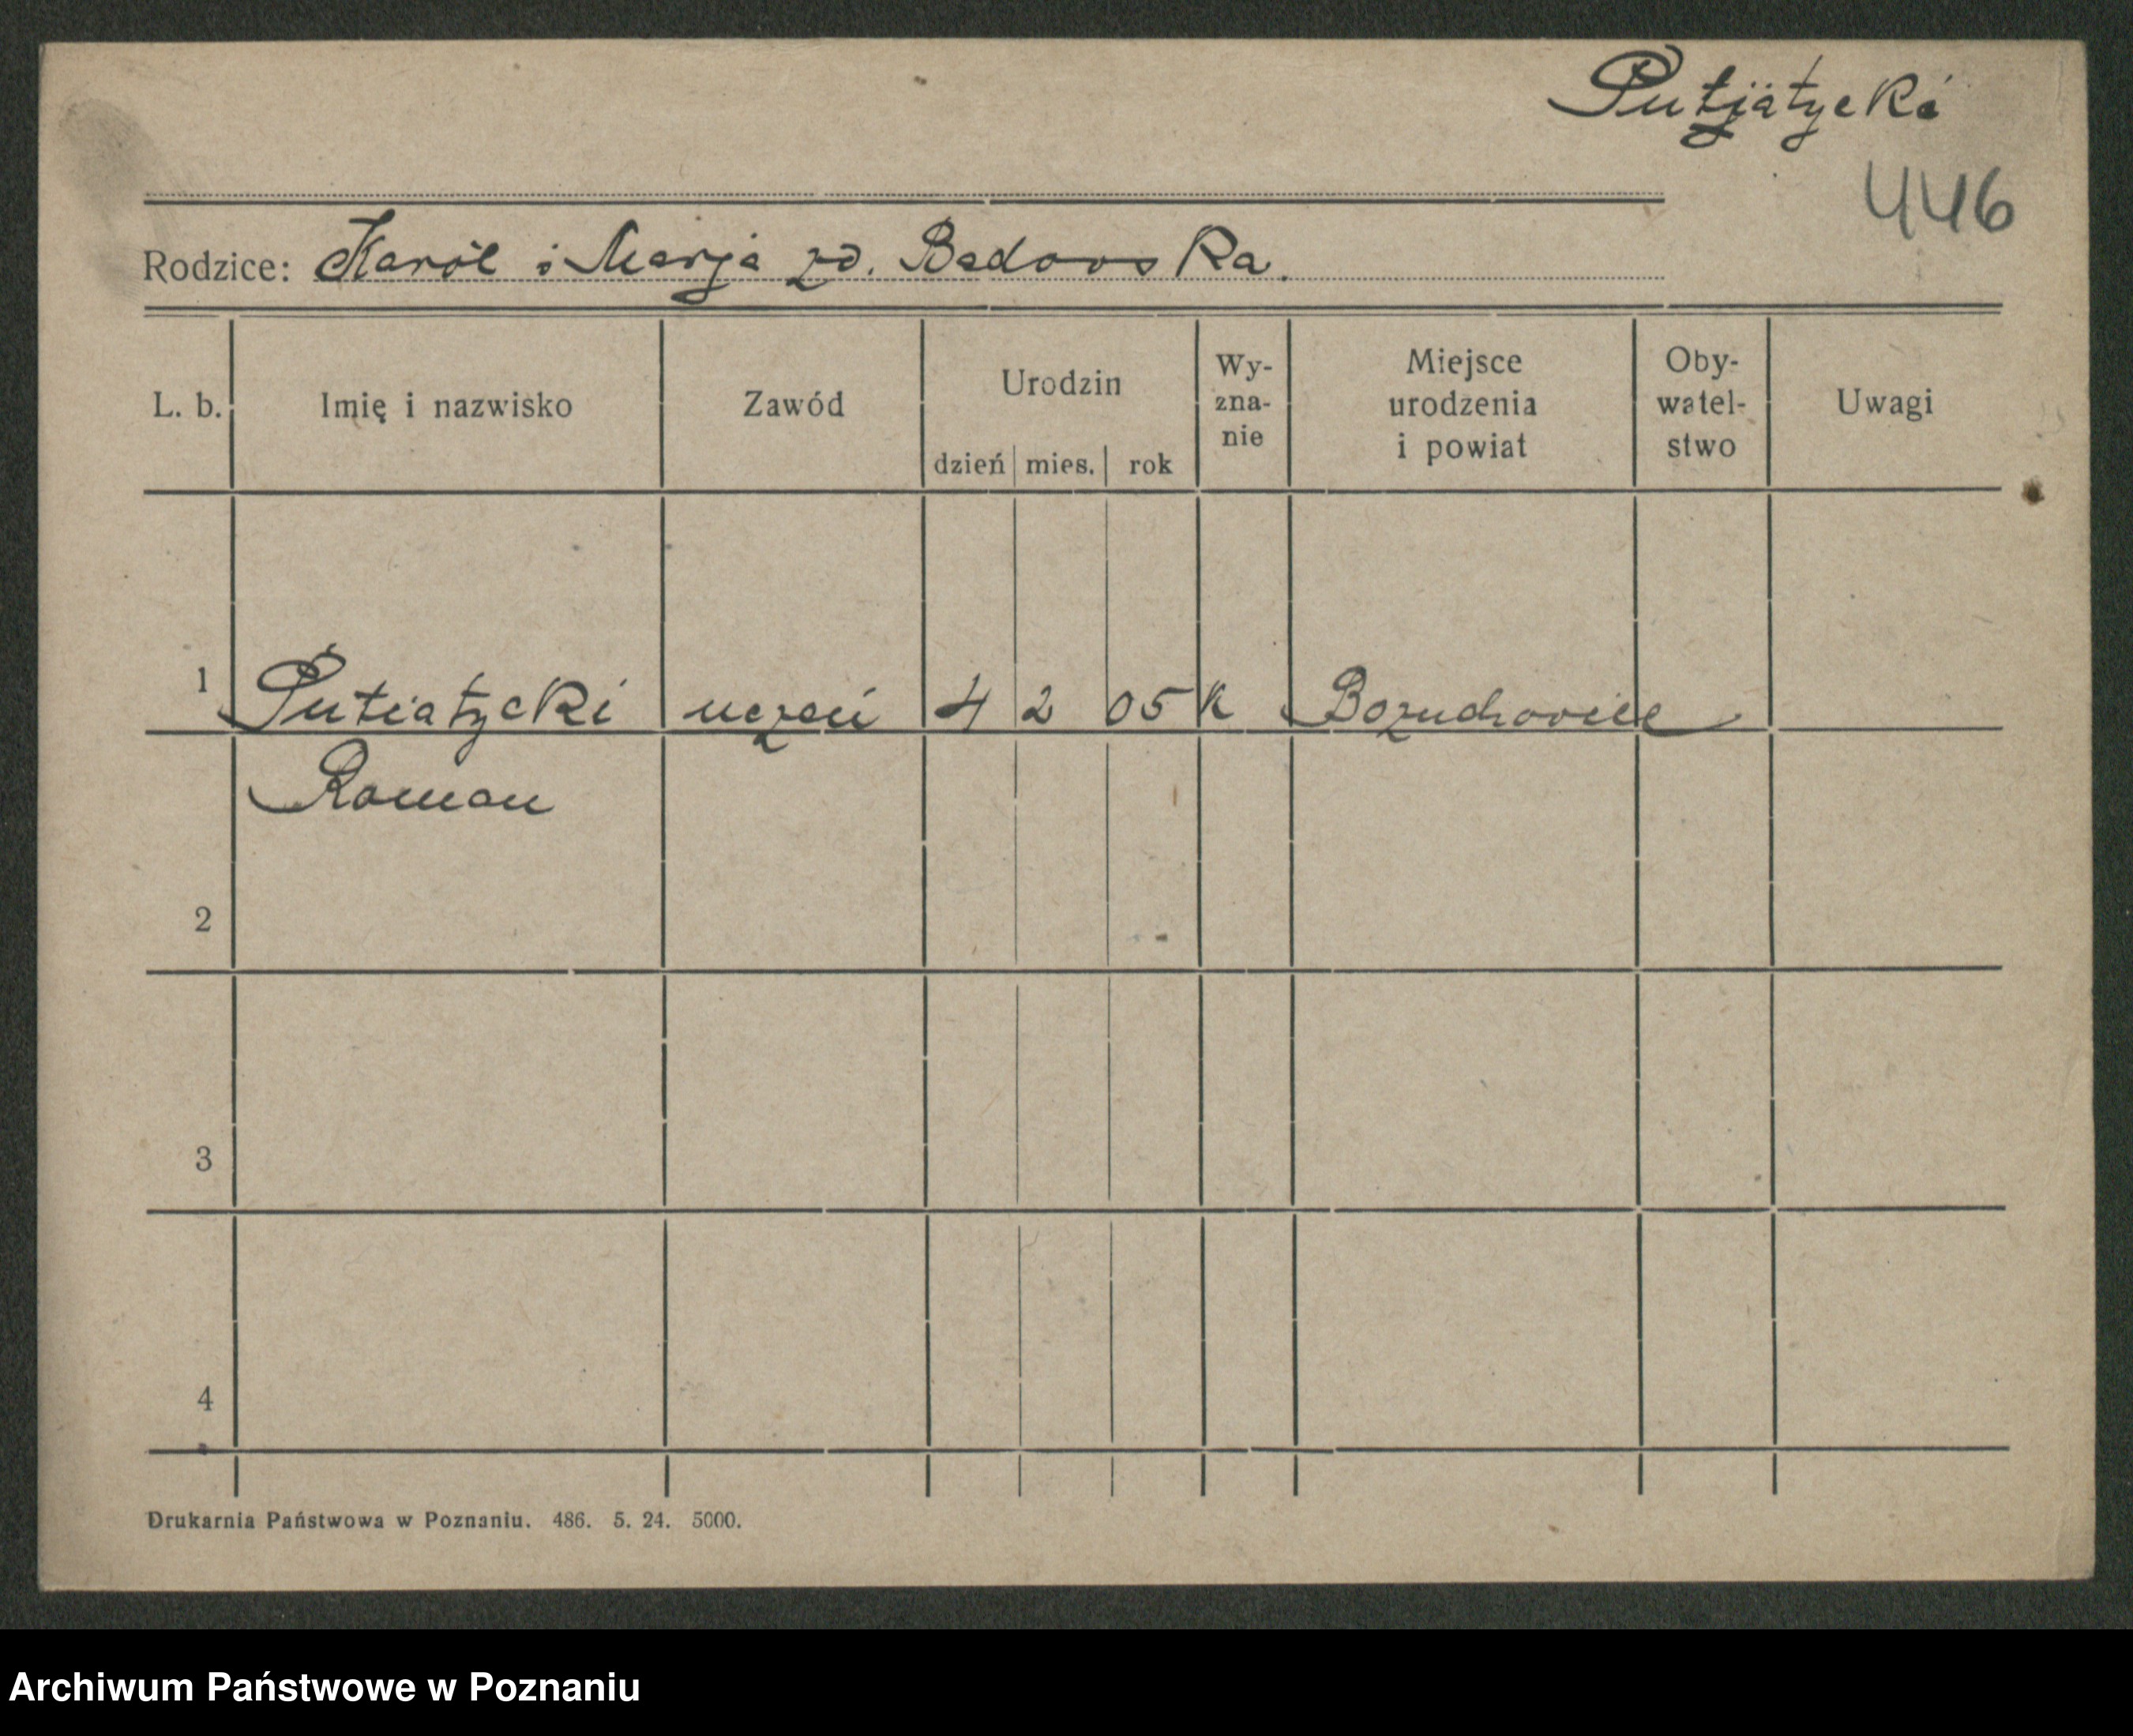 Putjatycki
446
Rodzice: Karól i Marja zd. Badowska.
L. b. Imię i nazwisko Zawód Urodzin dzień mies. rok Wy-zna-nie Miejsce urodzenia i powiat Oby-watel-stwo Uwagi
1 Putiatycki uczeń 4 2 05 K Bozuchowice
Roman
2
3
4
Drukarnia Państwowa w Poznaniu. 486. 5. 24. 5000.
Archiwum Państwowe w Poznaniu